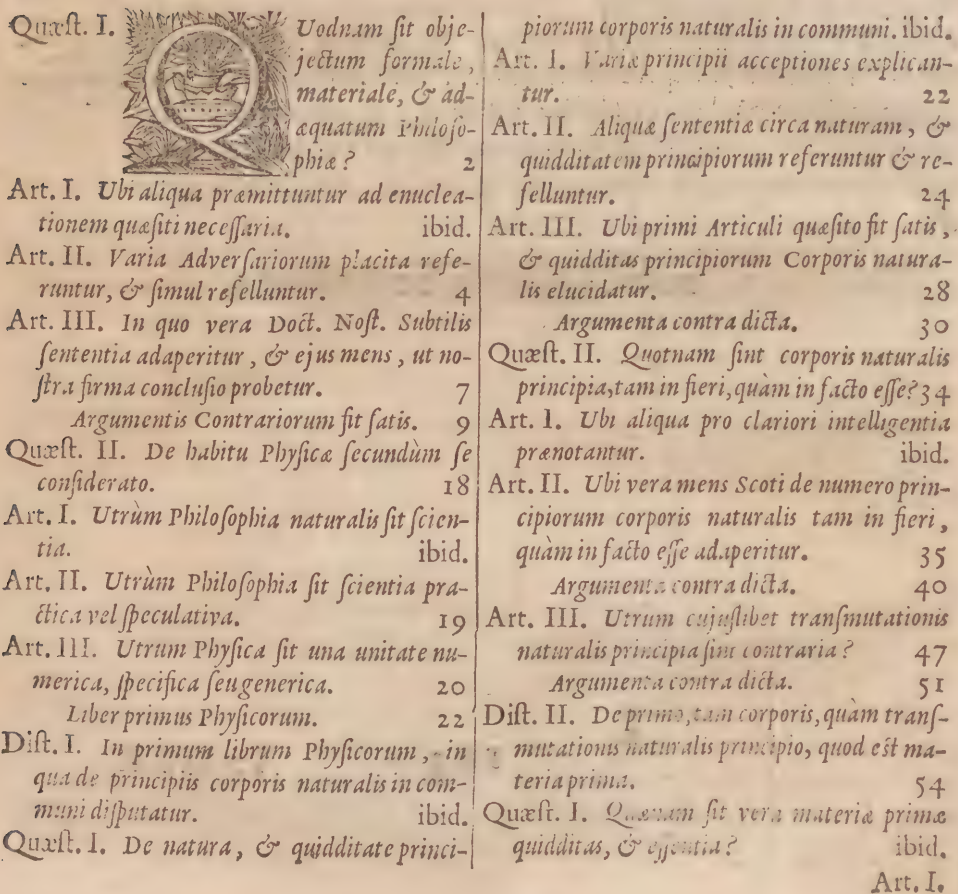 Quæſt. I. QUodnam ſit obje-
jectum formale,
materiale, & ad-
æquatum Philoſo-
phiæ? 2
Art. I. Ubi aliqua præmittuntur ad enuclea-
tionem quæſiti neceſſaria. ibid.
Art. II. Varia Adverſariorum placita refe-
runtur, & ſimul refelluntur. 4
Art. III. In quo vera Doct. Noſt. Subtilis
ſententia adaperitur, & ejus mens, ut no-
ſtra firma concluſio probetur. 7
Argumentis Contrariorum fit ſatis. 9
Quæſt. II. De habitu Phyſicæ ſecundùm ſe
conſiderato. 18
Art. I. Utrùm Philoſophia naturalis ſit ſcien-
tia. ibid.
Art. II. Utrùm Philoſophia ſit ſcientia pra-
ctica vel ſpeculativa. 19
Art. III. Utrum Phyſica ſit una unitate nu-
merica, ſpecifica ſeu generica. 20
Liber primus Phyſicorum. 22
Diſt. I. In primum librum Phyſicorum, in
qua de principiis corporis naturalis in com-
muni diſputatur. ibid.
Quæſt. I. De natura, & quidditate princi-
piorum corporis naturalis in communi. ibid.
Art. I. Variæ principii acceptiones explican-
tur. 22
Art. II. Aliquæ ſententiæ circa naturam, &
quidditatem principiorum referuntur & re-
felluntur. 24
Art. III. Ubi primi Articuli quæſito fit ſatis,
& quidditas principiorum Corporis natura-
lis elucidatur. 28
Argumenta contra dicta. 30
Quæſt. II. Quotnam ſint corporis naturalis
principia, tam in fieri, quàm in facto eſſe? 34
Art. I. Ubi aliqua pro clariori intelligentia
prænotantur. ibid.
Art. II. Ubi vera mens Scoti de numero prin-
cipiorum corporis naturalis tam in fieri,
quàm in facto eſſe adaperitur. 35
Argumenta contra dicta. 40
Art. III. Utrum cujuſlibet tranſmutationis
naturalis principia ſint contraria? 47
Argumenta contra dicta. 51
Diſt. II. De primo, tam corporis, quàm tranſ-
mutationis naturalis principio, quod eſt ma-
teria prima. 54
Quæſt. I. Quænam ſit vera materiæ primæ
quidditas, & eſſentia? ibid.
Art. I.